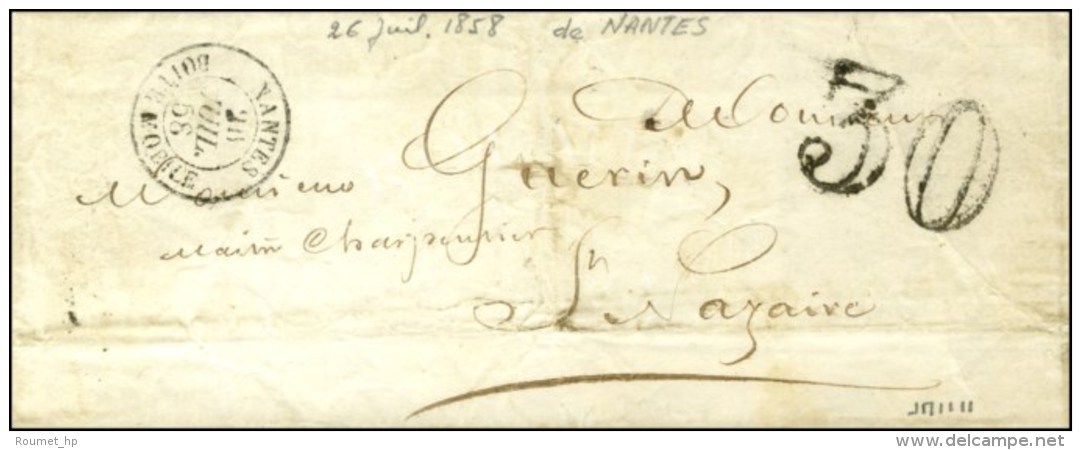 26 Juil. 1858 de NANTES
NANTES BOITE MOBILE
26
JUIL.
58
30
Monsieur Guerin,
Maitre Charpentier
St Nazaire
Roumet_hp
www.delcampe.net